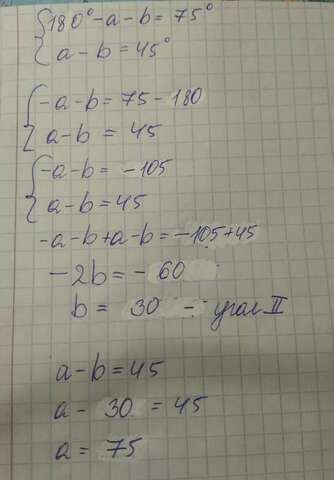 180° - a - b = 75°
a - b = 45°
-a - b = 75 - 180
a - b = 45
-a - b = -105
a - b = 45
-a - b + a - b = -105 + 45
-2b = - 60
b = 30 - угол II
a - b = 45
a - 30 = 45
a = 75